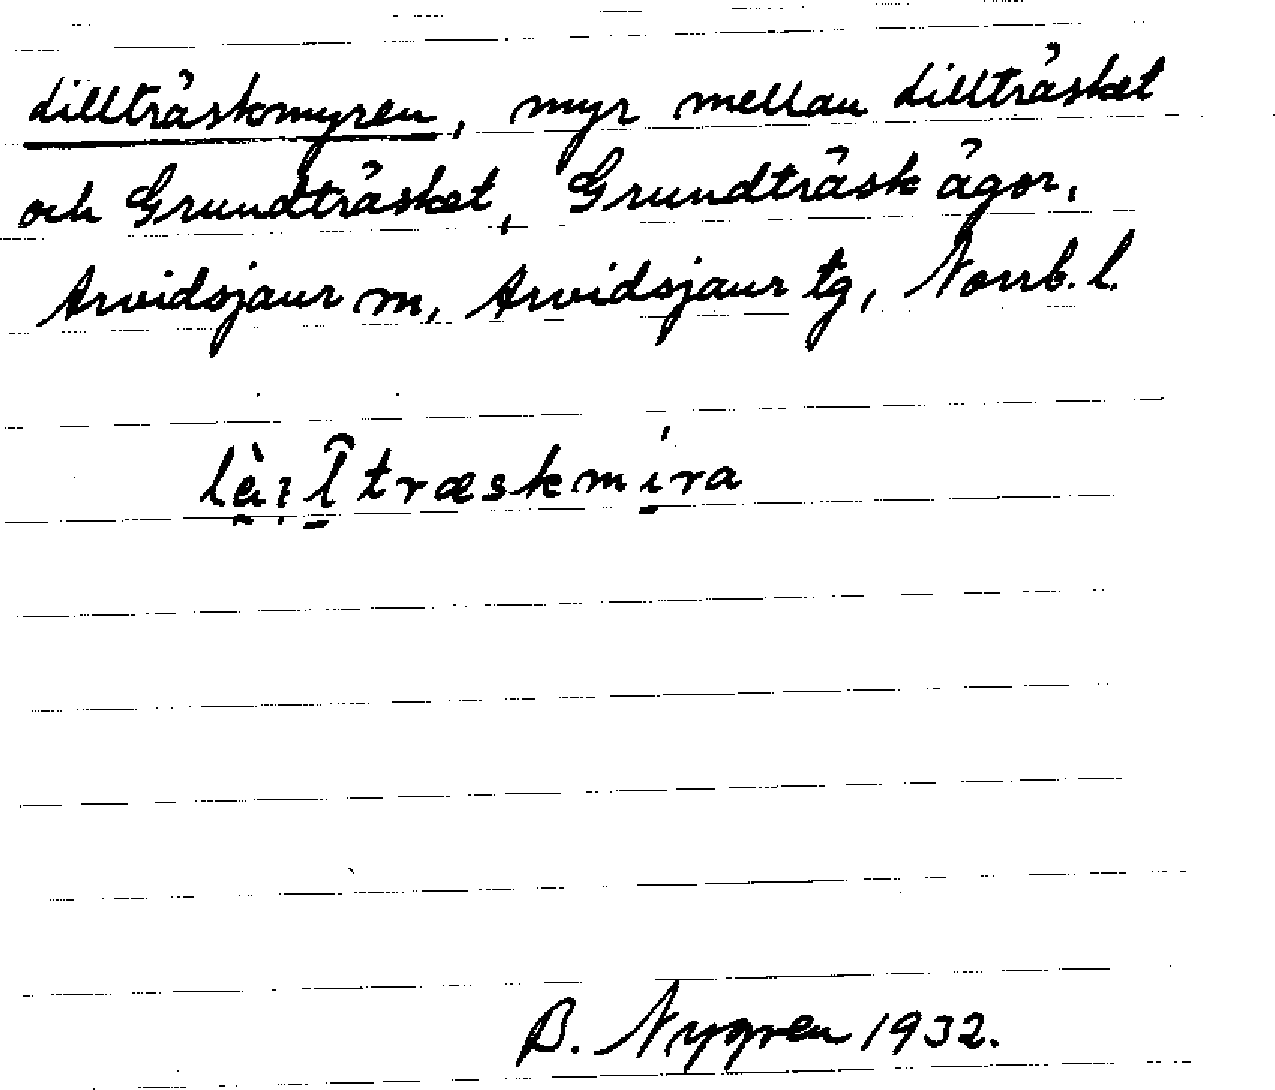 Lillträskmyren, myr mellan Lillträsket
och Grundträsket, Grundträsk ägor,
Arvidsjaur m, Arvidsjaur tg, Norrb. l.
B. Nygren 1932.